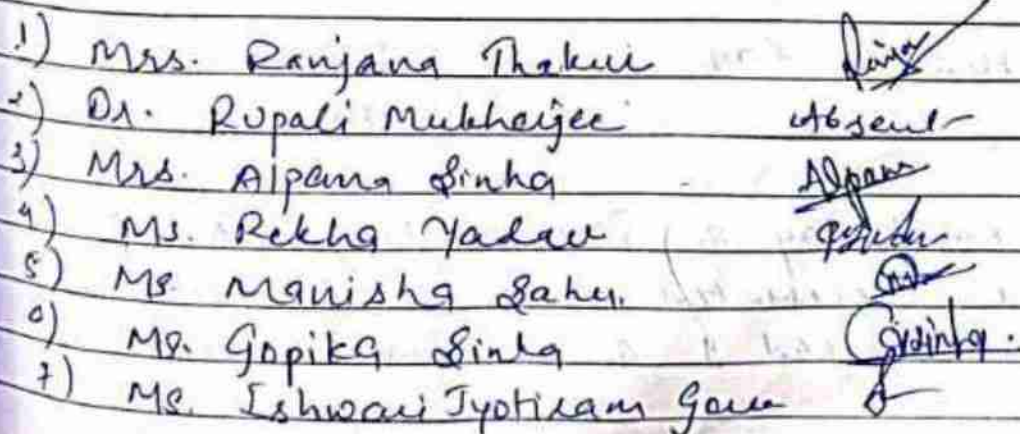 1) Mrs. Ranjana Thakur
2) Dr. Rupali Mukherjee Absent
3) Mrs. Alpana Sinha Alpana
4) Ms. Rekha Yadav
5) Ms. Manisha Sahu.
6) Ms. Gopika Sinha GSinha.
7) Ms. Ishwari Jyotiram